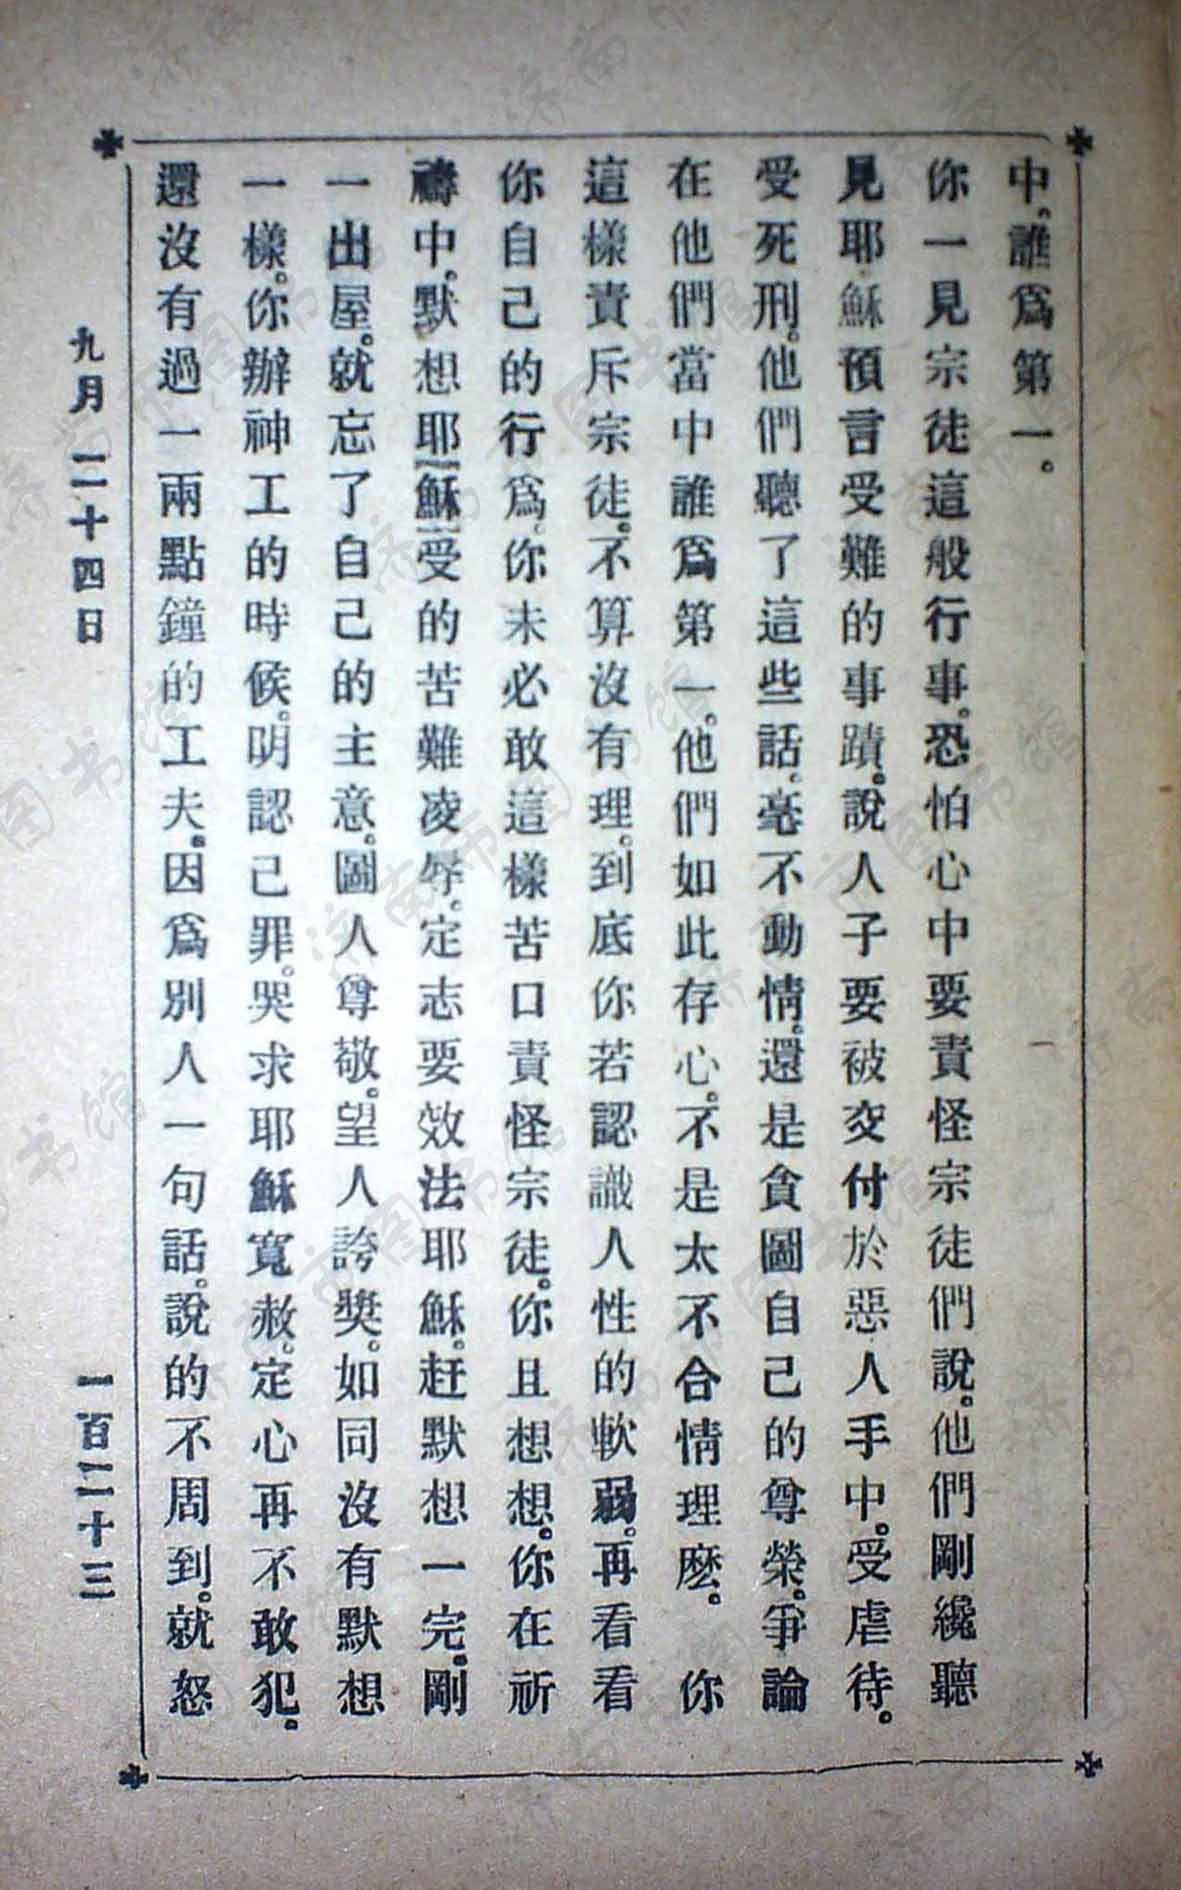 中。誰爲第一。
你一見宗徒這般行事。恐怕心中要責怪宗徒們說。他們剛纔聽
見耶穌預言受難的事蹟。說人子要被交付於惡人手中。受虐待。
受死刑。他們聽了這些話。毫不動情。還是貪圖自己的尊榮。爭論
在他們當中誰爲第一。他們如此存心。不是太不合情理麽。 你
這樣責斥宗徒。不算沒有理。到底你若認識人性的軟弱。再看看
你自己的行爲。你未必敢這樣苦口責怪宗徒。你且想想。你在祈
禱中。默想耶穌受的苦難凌辱。定志要效法耶穌。赶默想一完。剛
一出屋。就忘了自己的主意。圖人尊敬。望人誇奬。如同沒有默想
一樣。你辦神工的時候。明認己罪。哭求耶穌寬赦。定心再不敢犯。
還沒有過一兩點鐘的工夫。因爲別人一句話。說的不周到。就怒
九月二十四日
一百二十三
济南市图书馆